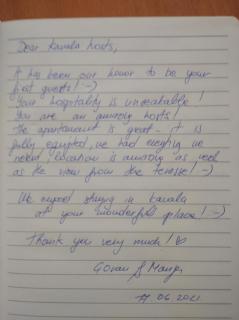 Dear Kavala hosts,
It has been our honor to be your
first guests! :-)
Your hospitality is unreakable!
You are an amazing hosts!
The apartament is great - it is
fully equipted, we had everything we
need, location is amazing as well
as the view from the teresse! :-)
We enjoyed staying in Kavala
at your wonderfull place! :-)
Thank you very much!
Goran &
17.06.2021